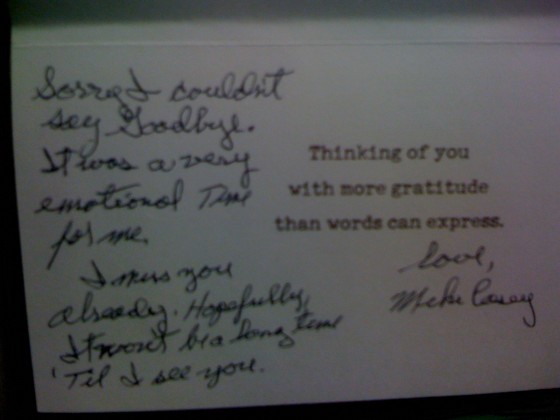 Sorry I couldn't
say Goodbye.
It was a very
emotional Time
for me.
I miss you
already. Hopefully,
It won't be a long time
'Til I see you.
Thinking of you
with more gratitude
than words can express.
love,
Mike Casey